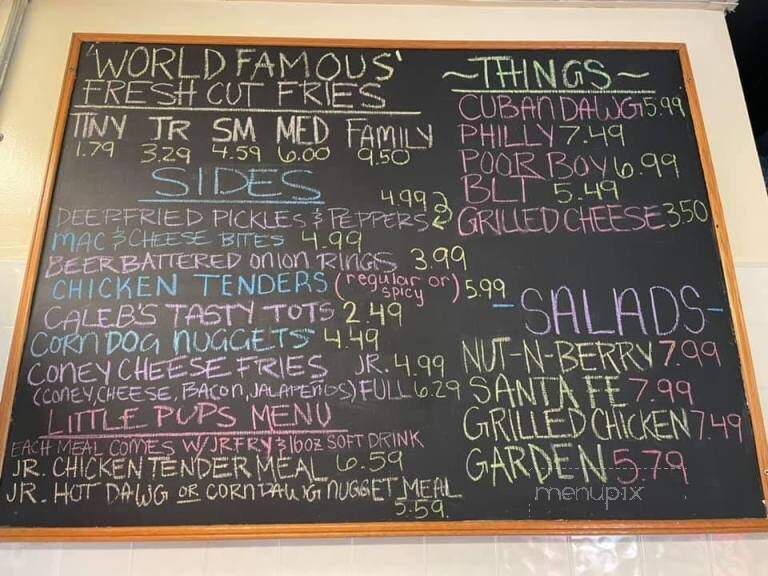 'WORLD FAMOUS'
FRESH CUT FRIES
TINY JR SM MED FAMILY
1.79 3.29 4.59 6.00 9.50
SIDES
4.99
DEEP FRIED PICKLES & PEPPERS
MAC & CHEESE BITES 4.99
BEER BATTERED ONION RINGS 3.99
CHICKEN TENDERS (regular or spicy) 5.99
CALEB'S TASTY TOTS 2.49
CORN DOG NUGGETS 4.49
CONEY CHEESE FRIES JR. 4.99
(CONEY, CHEESE, BACON, JALAPEÑOS) FULL 6.29
LITTLE PUPS MENU
EACH MEAL COMES W/ JR FRY & 16oz SOFT DRINK
JR. CHICKEN TENDER MEAL 6.59
JR. HOT DAWG OR CORN DAWG NUGGET MEAL
5.59
~THINGS~
CUBAN DAWG 5.99
PHILLY 7.49
POOR BOY 6.99
BLT 5.49
GRILLED CHEESE 3.50
-SALADS-
NUT-N-BERRY 7.99
SANTA FE 7.99
GRILLED CHICKEN 7.49
GARDEN 5.79
menupix